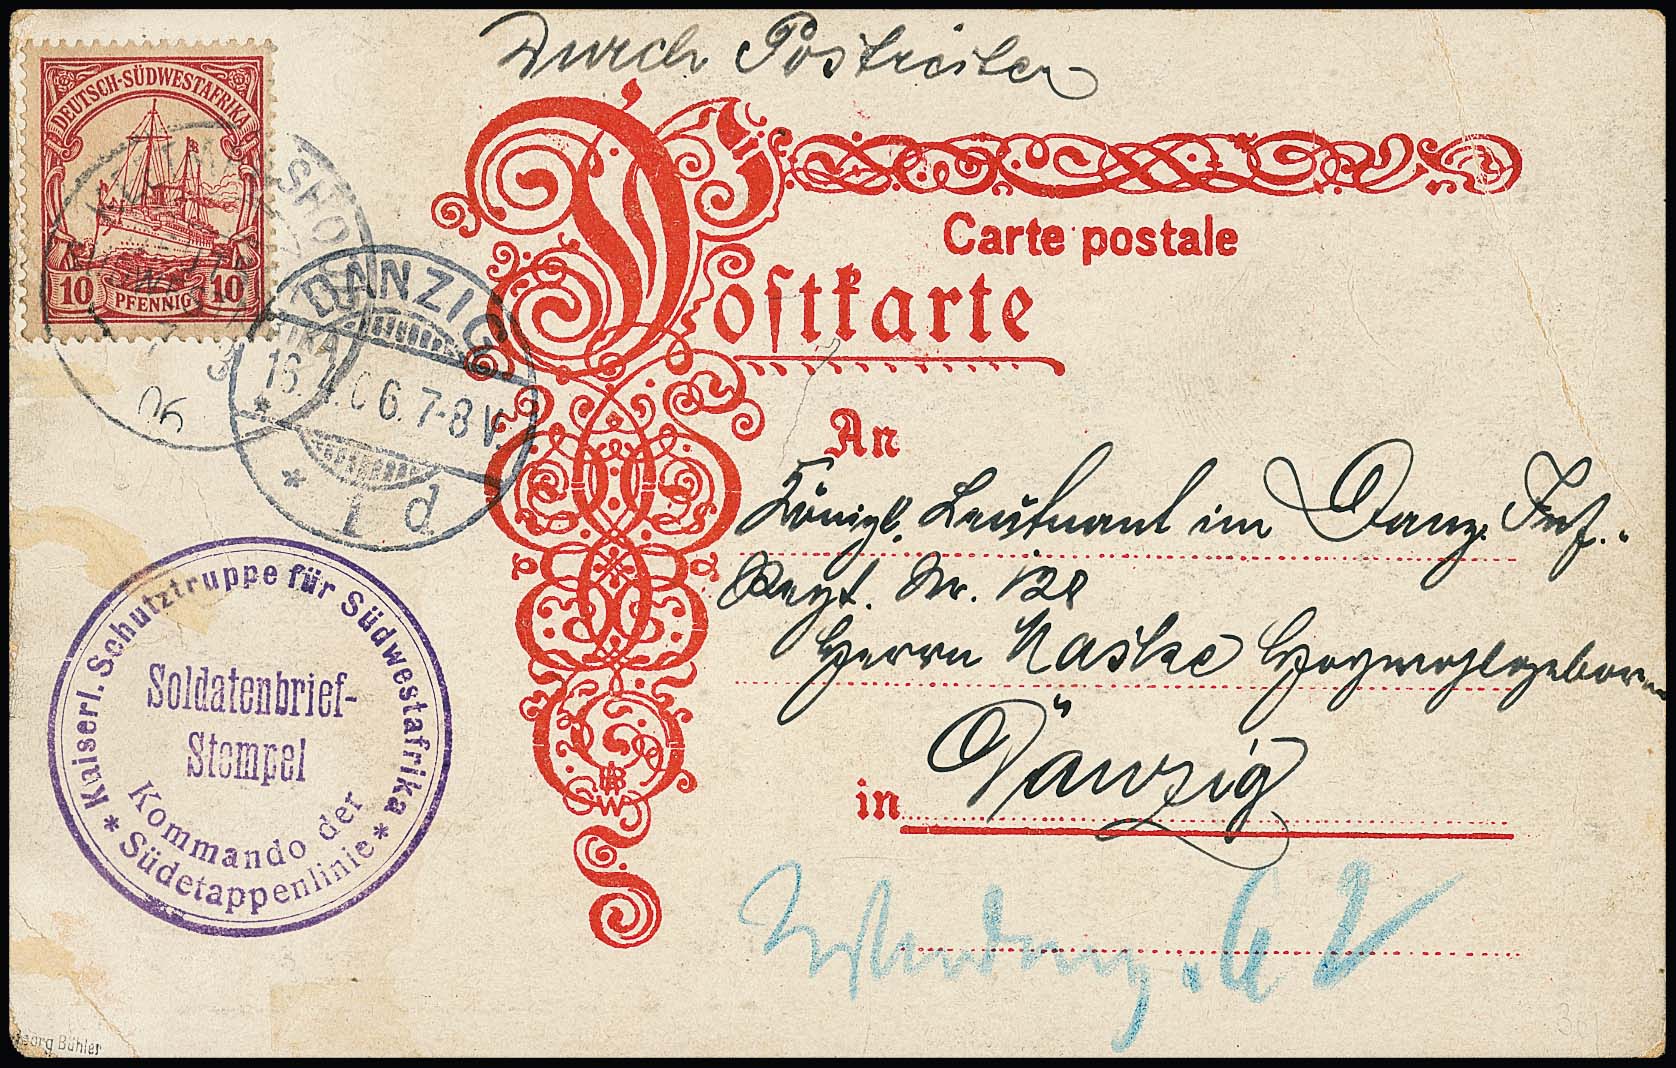 Durch Postreiter
DEUTSCH-SÜDWESTAFRIKA
10 PFENNIG 10
DANZIG
16. 4. 06. 7-8 V.
* 1 d
06
Carte postale
Postkarte
An
Königl. Leutnant im Danz. Inf.-
Regt. Nr. 128
Herrn Maske Hochwohlgeboren
in Danzig
Kaiserl. Schutztruppe für Südwestafrika
Soldatenbrief-
Stempel
Kommando der
* Südetappenlinie *
Georg Bühler